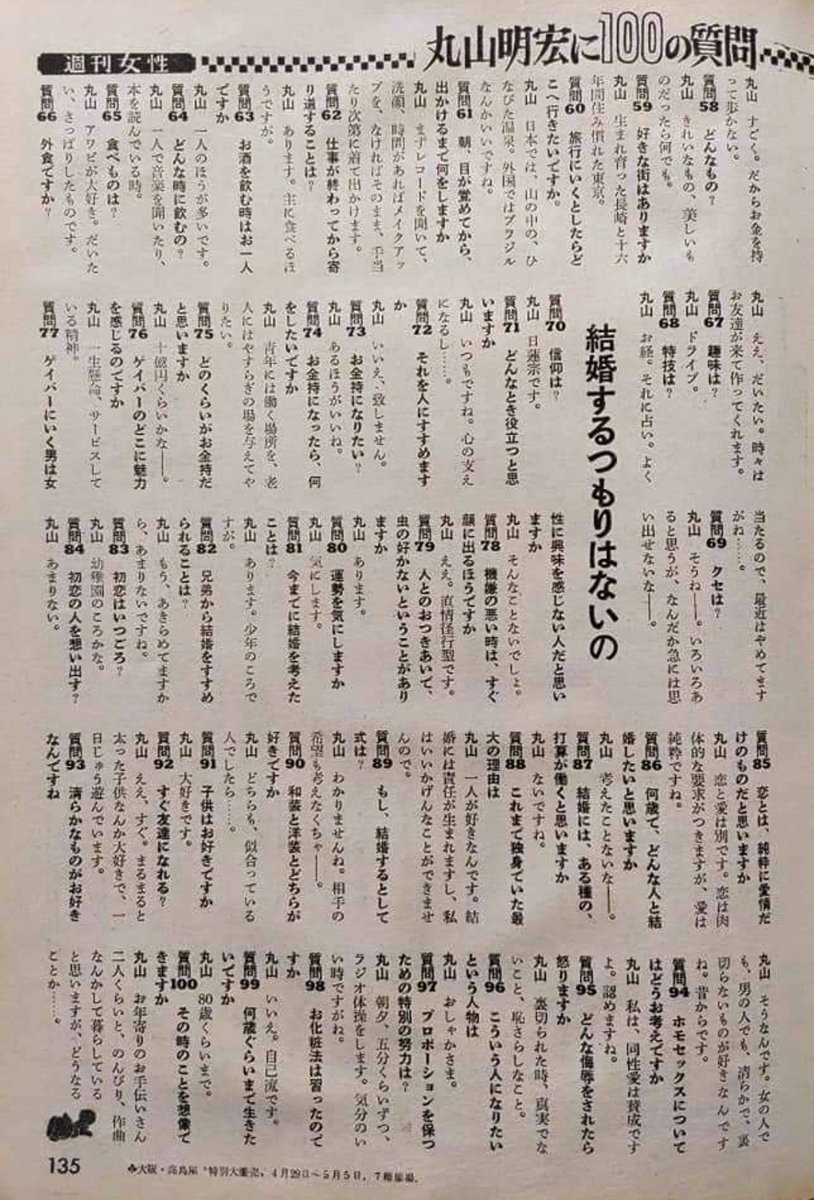 丸山明宏に100の質問
週刊女性
丸山　すごく。だからお金を持
って歩かない。
質問58　どんなもの？
丸山　きれいなもの、美しいも
のだったら何でも。
質問59　好きな街はありますか
丸山　生まれ育った長崎と十六
年間住み慣れた東京。
質問60　旅行にいくとしたらど
こへ行きたいですか。
丸山　日本では、山の中の、ひ
なびた温泉。外国ではブラジル
なんかいいですね。
質問61　朝、目が覚めてから、
出かけるまで何をしますか
丸山　まずレコードを聞いて、
洗顔、時間があればメイクアッ
プを、なければそのまま、手当
たり次第に着て出かけます。
質問62　仕事が終わってから寄
り道することは？
丸山　あります。主に食べるほ
うですが。
質問63　お酒を飲む時はお一人
ですか
丸山　一人のほうが多いです。
質問64　どんな時に飲むの？
丸山　一人で音楽を聞いたり、
本を読んでいる時。
質問65　食べものは？
丸山　アワビが大好き。だいた
い、さっぱりしたものです。
質問66　外食ですか？
丸山　ええ、だいたい。時々は
お友達が来て作ってくれます。
質問67　趣味は？
丸山　ドライブ。
質問68　特技は？
丸山　お経。それに占い。よく
当たるので、最近はやめてます
がね……。
質問69　クセは？
丸山　そうね――。いろいろあ
ると思うが、なんだか急には思
い出せないな――。
結婚するつもりはないの
質問70　信仰は？
丸山　日蓮宗です。
質問71　どんなとき役立つと思
いますか
丸山　いつもですね。心の支え
になるし……。
質問72　それを人にすすめます
か
丸山　いいえ、致しません。
質問73　お金持になりたい？
丸山　あるほうがいいね。
質問74　お金持になったら、何
をしたいですか
丸山　青年には働く場所を、老
人にはやすらぎの場を与えてや
りたい。
質問75　どのくらいがお金持だ
と思いますか
丸山　十億円くらいかな――。
質問76　ゲイバーのどこに魅力
を感じるのですか
丸山　一生懸命、サービスして
いる精神。
質問77　ゲイバーにいく男は女
性に興味を感じない人だと思い
ますか
丸山　そんなことないでしょ。
質問78　機嫌の悪い時は、すぐ
顔に出るほうですか
丸山　ええ。直情径行型です。
質問79　人とのおつきあいで、
虫の好かないということがあり
ますか
丸山　あります。
質問80　運勢を気にしますか
丸山　気にします。
質問81　今までに結婚を考えた
ことは？
丸山　あります。少年のころで
すが。
質問82　兄弟から結婚をすすめ
られることは？
丸山　もう、あきらめてますか
ら、あまりないですね。
質問83　初恋はいつごろ？
丸山　幼稚園のころかな。
質問84　初恋の人を想い出す？
丸山　あまりない。
質問85　恋とは、純粋に愛情だ
けのものだと思いますか
丸山　恋と愛は別です。恋は肉
体的な要求がつきますが、愛は
純粋ですね。
質問86　何歳で、どんな人と結
婚したいと思いますか
丸山　考えたことないな――。
質問87　結婚には、ある種の、
打算が働くと思いますか
丸山　ないですね。
質問88　これまで独身でいた最
大の理由は
丸山　一人が好きなんです。結
婚には責任が生まれますし、私
はいいかげんなことができませ
んので。
質問89　もし、結婚するとして
式は？
丸山　わかりませんね。相手の
希望も考えなくちゃ――。
質問90　和装と洋装とどちらが
好きですか
丸山　どちらも、似合っている
人でしたら……。
質問91　子供はお好きですか
丸山　大好きです。
質問92　すぐ友達になれる？
丸山　ええ、すぐ。まるまると
太った子供なんか大好きで、一
日じゅう遊んでいます。
質問93　清らかなものがお好き
なんですね
丸山　そうなんです。女の人で
も、男の人でも、清らかで、裏
切らないものが好きなんです
ね。昔からです。
質問94　ホモセックスについて
はどうお考えですか
丸山　私は、同性愛は賛成です
よ。認めますね。
質問95　どんな侮辱をされたら
怒りますか
丸山　裏切られた時、真実でな
いこと、恥さらしなこと。
質問96　こういう人になりたい
という人物は
丸山　おしゃかさま。
質問97　プロポーションを保つ
ための特別の努力は？
丸山　朝夕、五分くらいずつ、
ラジオ体操をします。気分のい
い時ですがね。
質問98　お化粧法は習ったので
すか
丸山　いいえ。自己流です。
質問99　何歳ぐらいまで生きた
いですか
丸山　80歳くらいまで。
質問100　その時のことを想像で
きますか
丸山　お年寄りのお手伝いさん
二人くらいと、のんびり、作曲
なんかして暮らしている
と思いますが、どうなる
ことか……。
135
♣大阪・高島屋“特別大奉売、4月29日〜5月5日、7階催場。